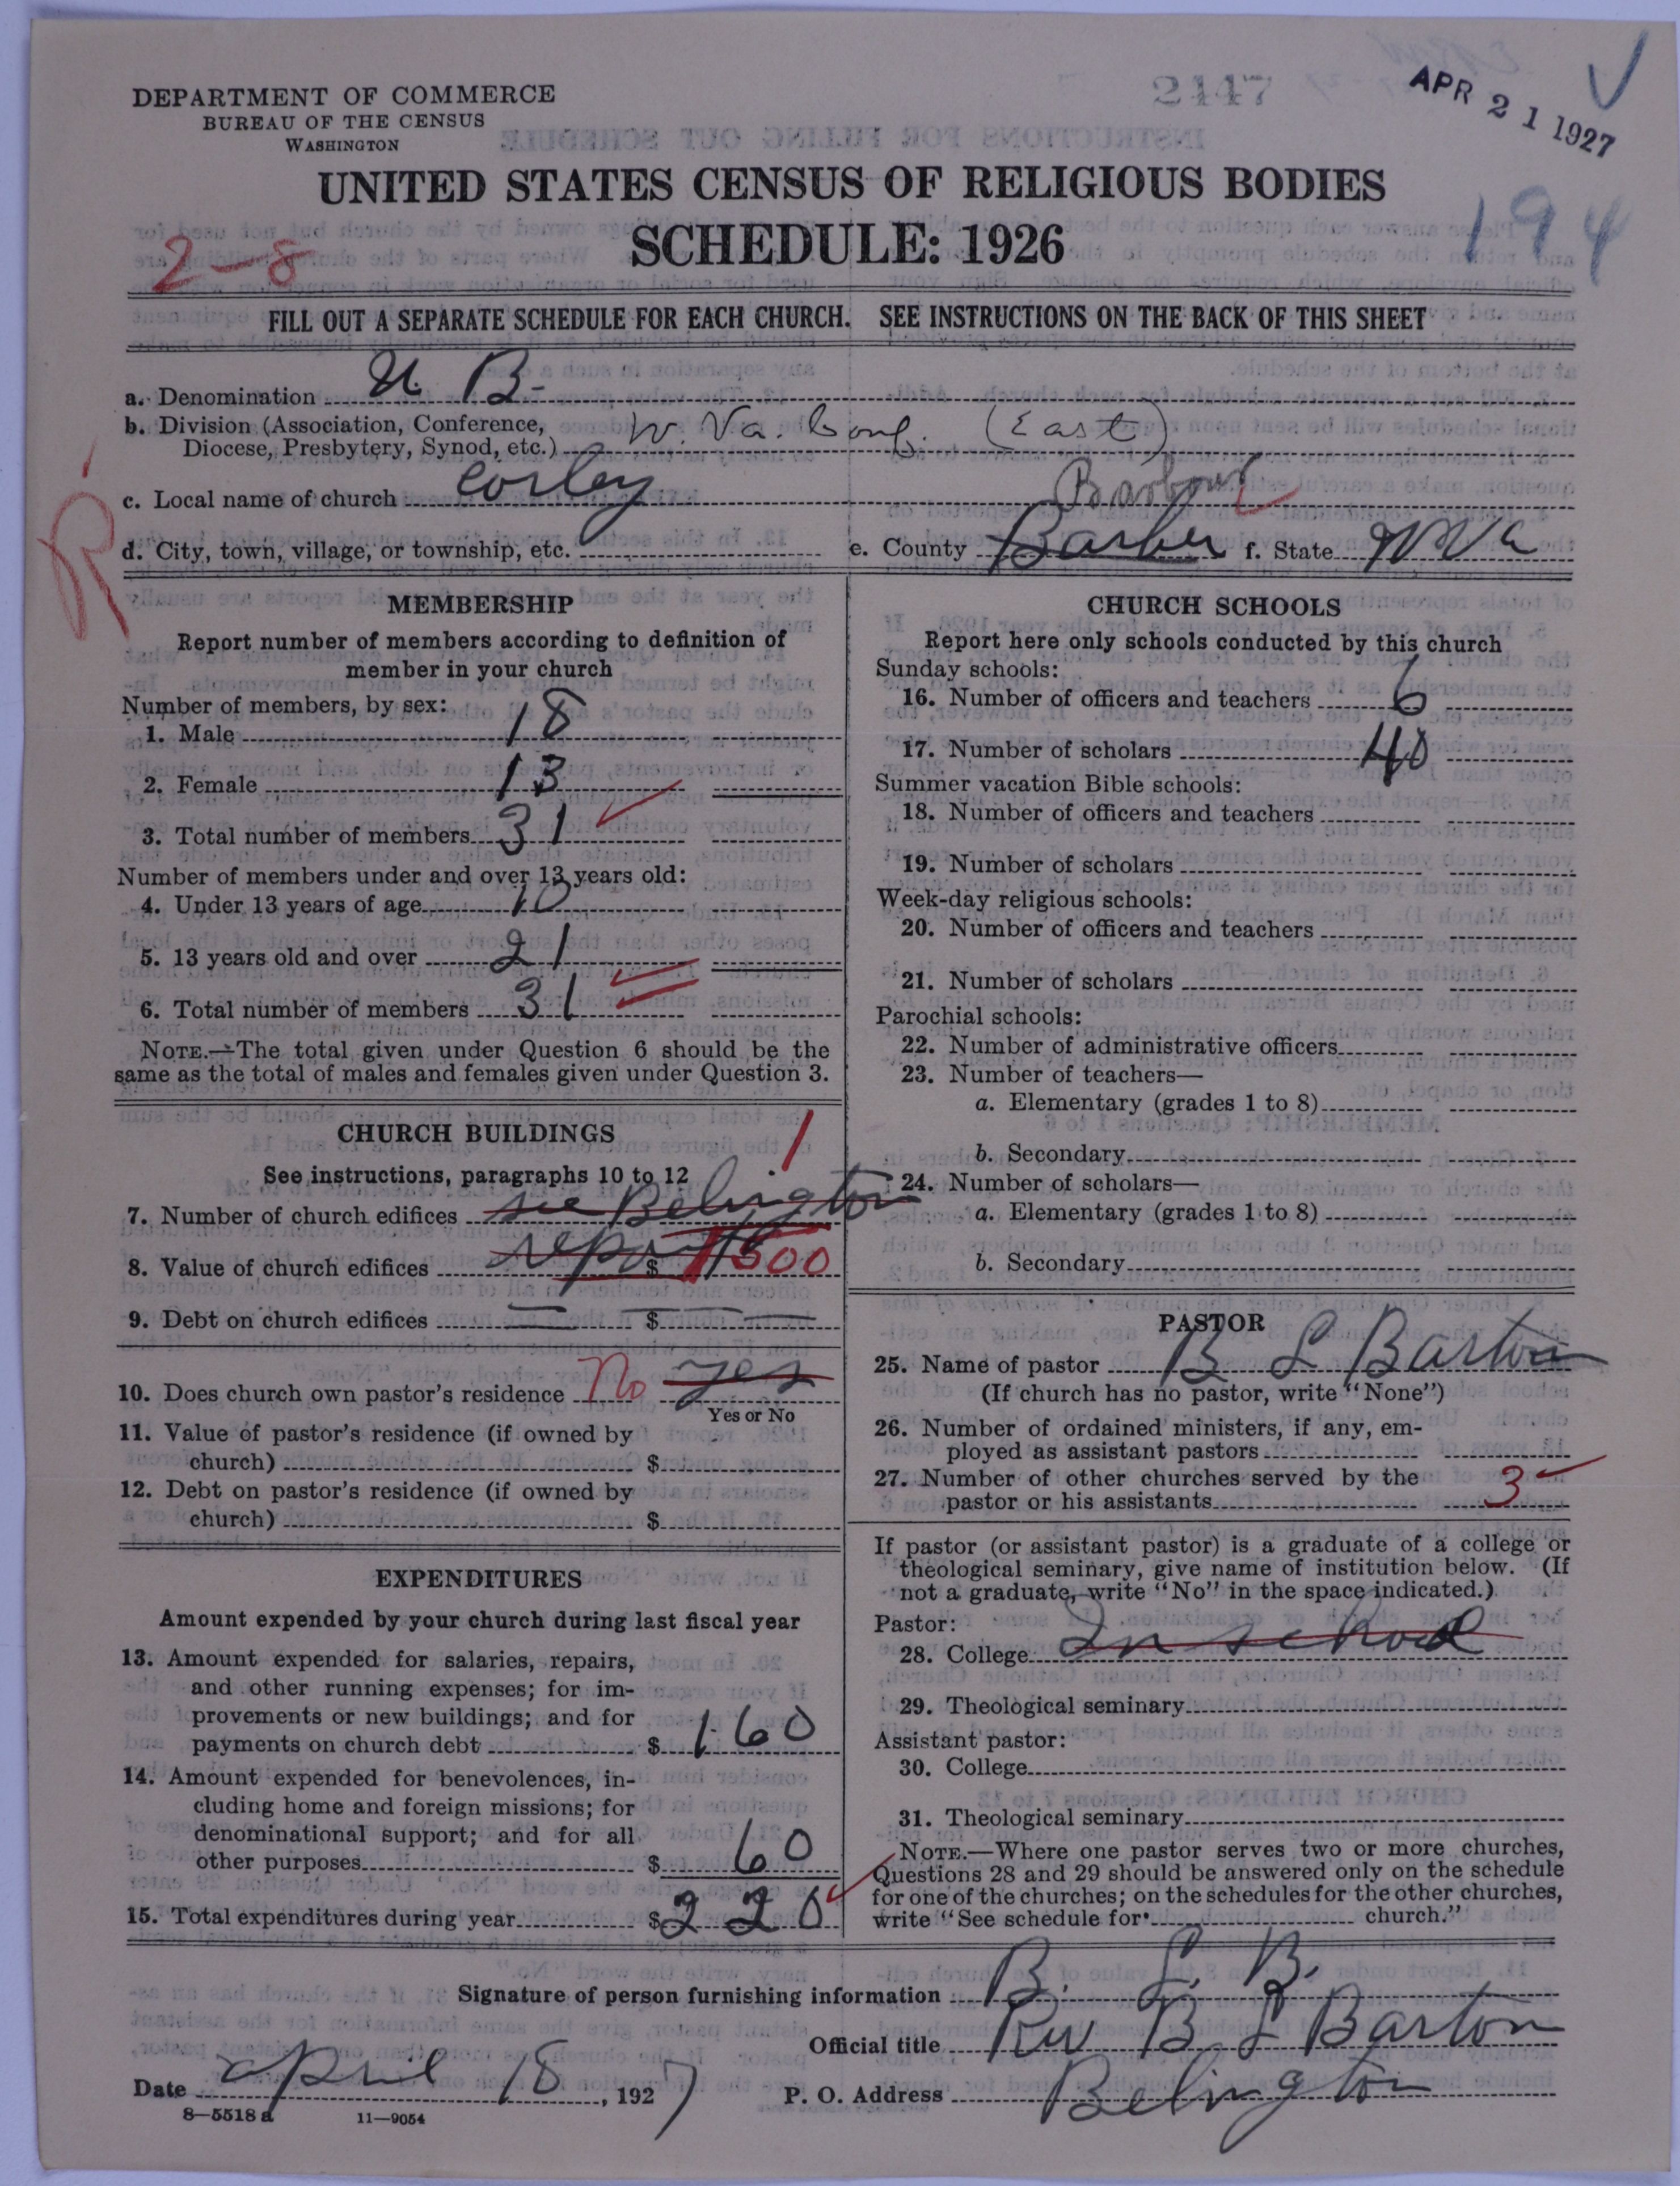 DEPARTMENT OF COMMERCE
BUREAU OF THE CENSUS
WASHINGTON
2447
APR 21 1927
UNITED STATES CENSUS OF RELIGIOUS BODIES
SCHEDULE: 1926
2-8
194
FILL OUT A SEPARATE SCHEDULE FOR EACH CHURCH. SEE INSTRUCTIONS ON THE BACK OF THIS SHEET
a. Denomination U. B.
b. Division (Association, Conference,
Diocese, Presbytery, Synod, etc.) W. Va. Conf. (East)
R
c. Local name of church Corley
Barbour
d. City, town, village, or township, etc. e. County Barber f. State W Va
MEMBERSHIP
Report number of members according to definition of
member in your church
Number of members, by sex:
1. Male 18
2. Female 13
3. Total number of members 31
Number of members under and over 13 years old:
4. Under 13 years of age 10
5. 13 years old and over 21
6. Total number of members 31
NOTE.—The total given under Question 6 should be the
same as the total of males and females given under Question 3.
CHURCH BUILDINGS
See instructions, paragraphs 10 to 12
1
7. Number of church edifices see Belington
8. Value of church edifices report $ 1500
9. Debt on church edifices — $ —
10. Does church own pastor's residence No yes
Yes or No
11. Value of pastor's residence (if owned by
church) $
12. Debt on pastor's residence (if owned by
church) $
EXPENDITURES
Amount expended by your church during last fiscal year
13. Amount expended for salaries, repairs,
and other running expenses; for im-
provements or new buildings; and for
payments on church debt $ 160
14. Amount expended for benevolences, in-
cluding home and foreign missions; for
denominational support; and for all
other purposes $ 60
15. Total expenditures during year $ 220
CHURCH SCHOOLS
Report here only schools conducted by this church
Sunday schools:
16. Number of officers and teachers 6
17. Number of scholars 40
Summer vacation Bible schools:
18. Number of officers and teachers
19. Number of scholars
Week-day religious schools:
20. Number of officers and teachers
21. Number of scholars
Parochial schools:
22. Number of administrative officers
23. Number of teachers—
a. Elementary (grades 1 to 8)
b. Secondary
24. Number of scholars—
a. Elementary (grades 1 to 8)
b. Secondary
PASTOR
25. Name of pastor B L Barton
(If church has no pastor, write "None")
26. Number of ordained ministers, if any, em-
ployed as assistant pastors
27. Number of other churches served by the
pastor or his assistants 3
If pastor (or assistant pastor) is a graduate of a college or
theological seminary, give name of institution below. (If
not a graduate, write "No" in the space indicated.)
Pastor:
28. College In school
29. Theological seminary
Assistant pastor:
30. College
31. Theological seminary
NOTE.—Where one pastor serves two or more churches,
Questions 28 and 29 should be answered only on the schedule
for one of the churches; on the schedules for the other churches,
write "See schedule for church."
Signature of person furnishing information B. L. B.
Official title Rev B L Barton
Date april 18, 1927 P. O. Address Belington
8—5518 a 11—9054